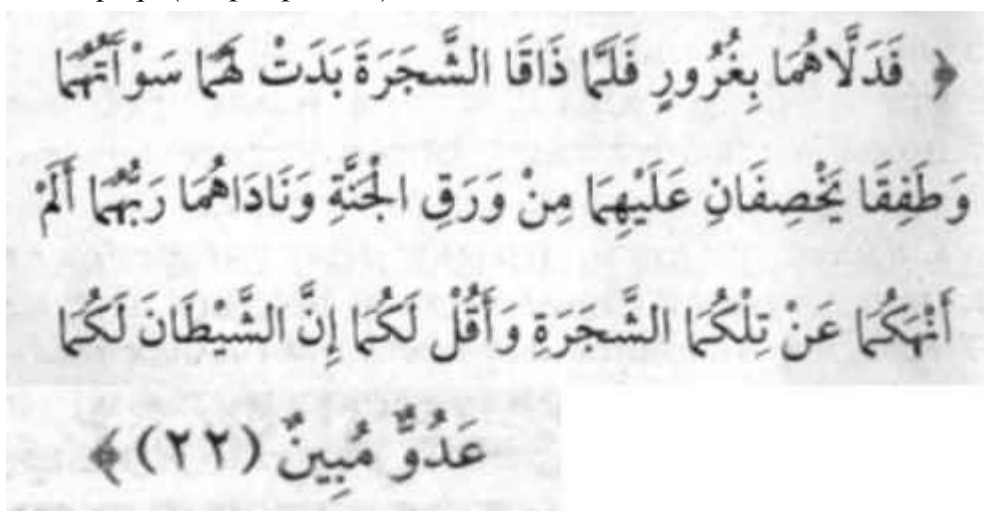 ﴿ فَدَلَّاهُمَا بِغُرُورٍ فَلَمَّا ذَاقَا الشَّجَرَةَ بَدَتْ لَهُمَا سَوْآتُهُمَا
وَطَفِقَا يَخْصِفَانِ عَلَيْهِمَا مِنْ وَرَقِ الْجَنَّةِ وَنَادَاهُمَا رَبُّهُمَا أَلَمْ
أَنْهَكُمَا عَنْ تِلْكُمَا الشَّجَرَةِ وَأَقُلْ لَكُمَا إِنَّ الشَّيْطَانَ لَكُمَا
عَدُوٌّ مُبِينٌ (٢٢) ﴾